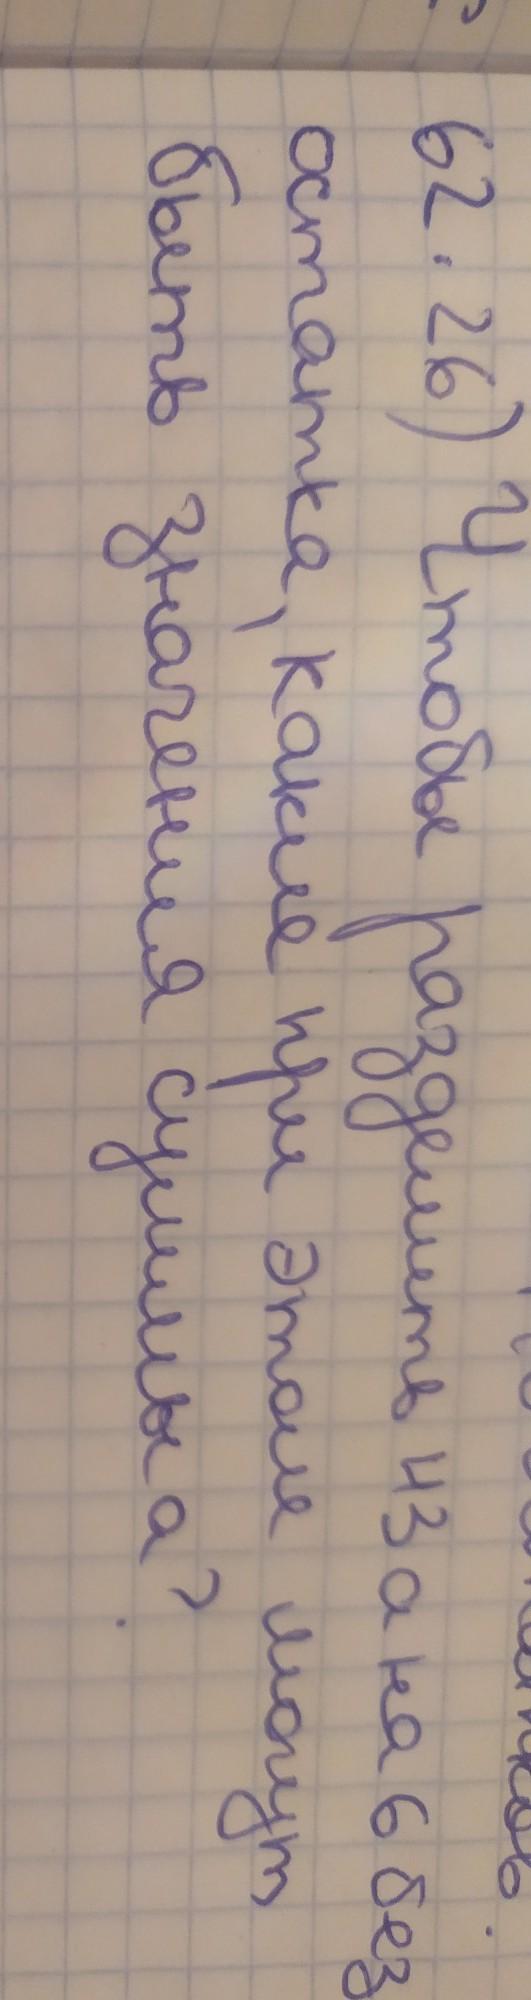 62.26) Чтобы разделить 43а на 6 без
остатка, какие при этом могут
быть значения суммы а?